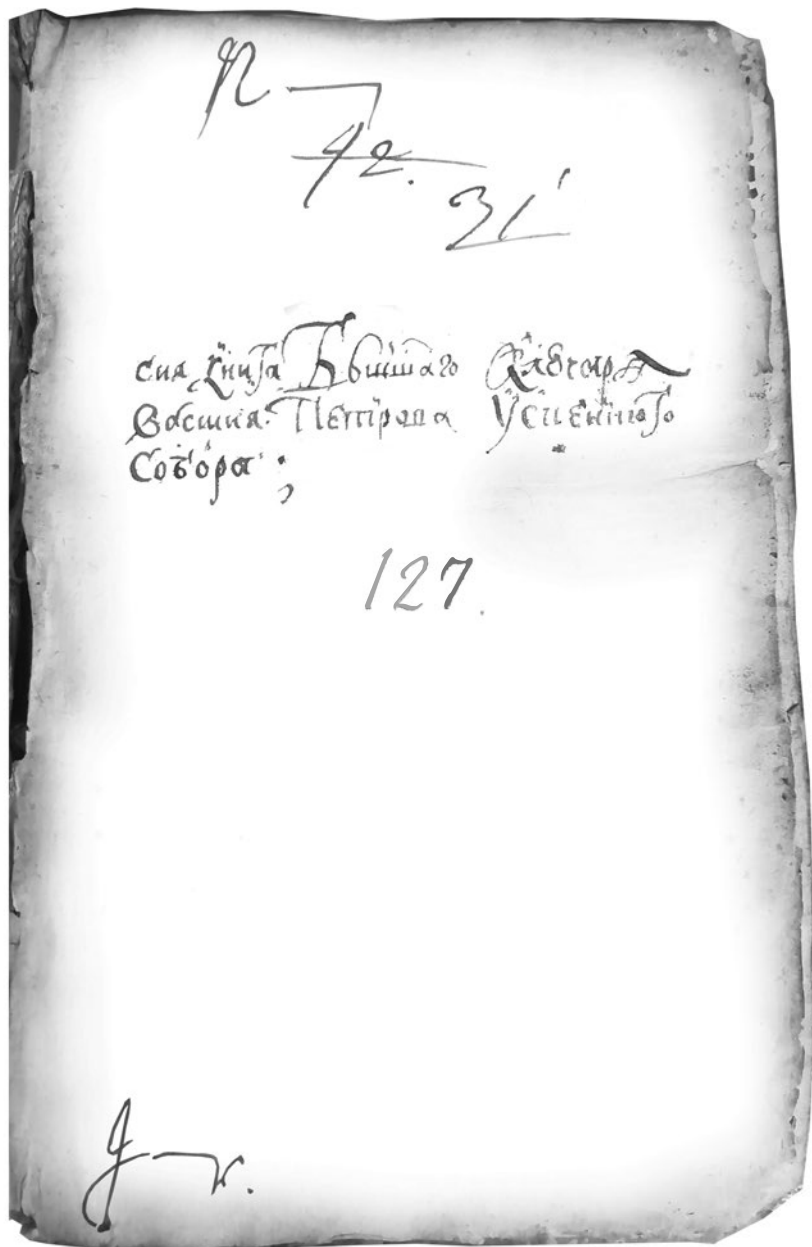 42.
31
сиа книга Бывшаго Ключаря
Василиа Петрова Успенскаго
Собора
127.